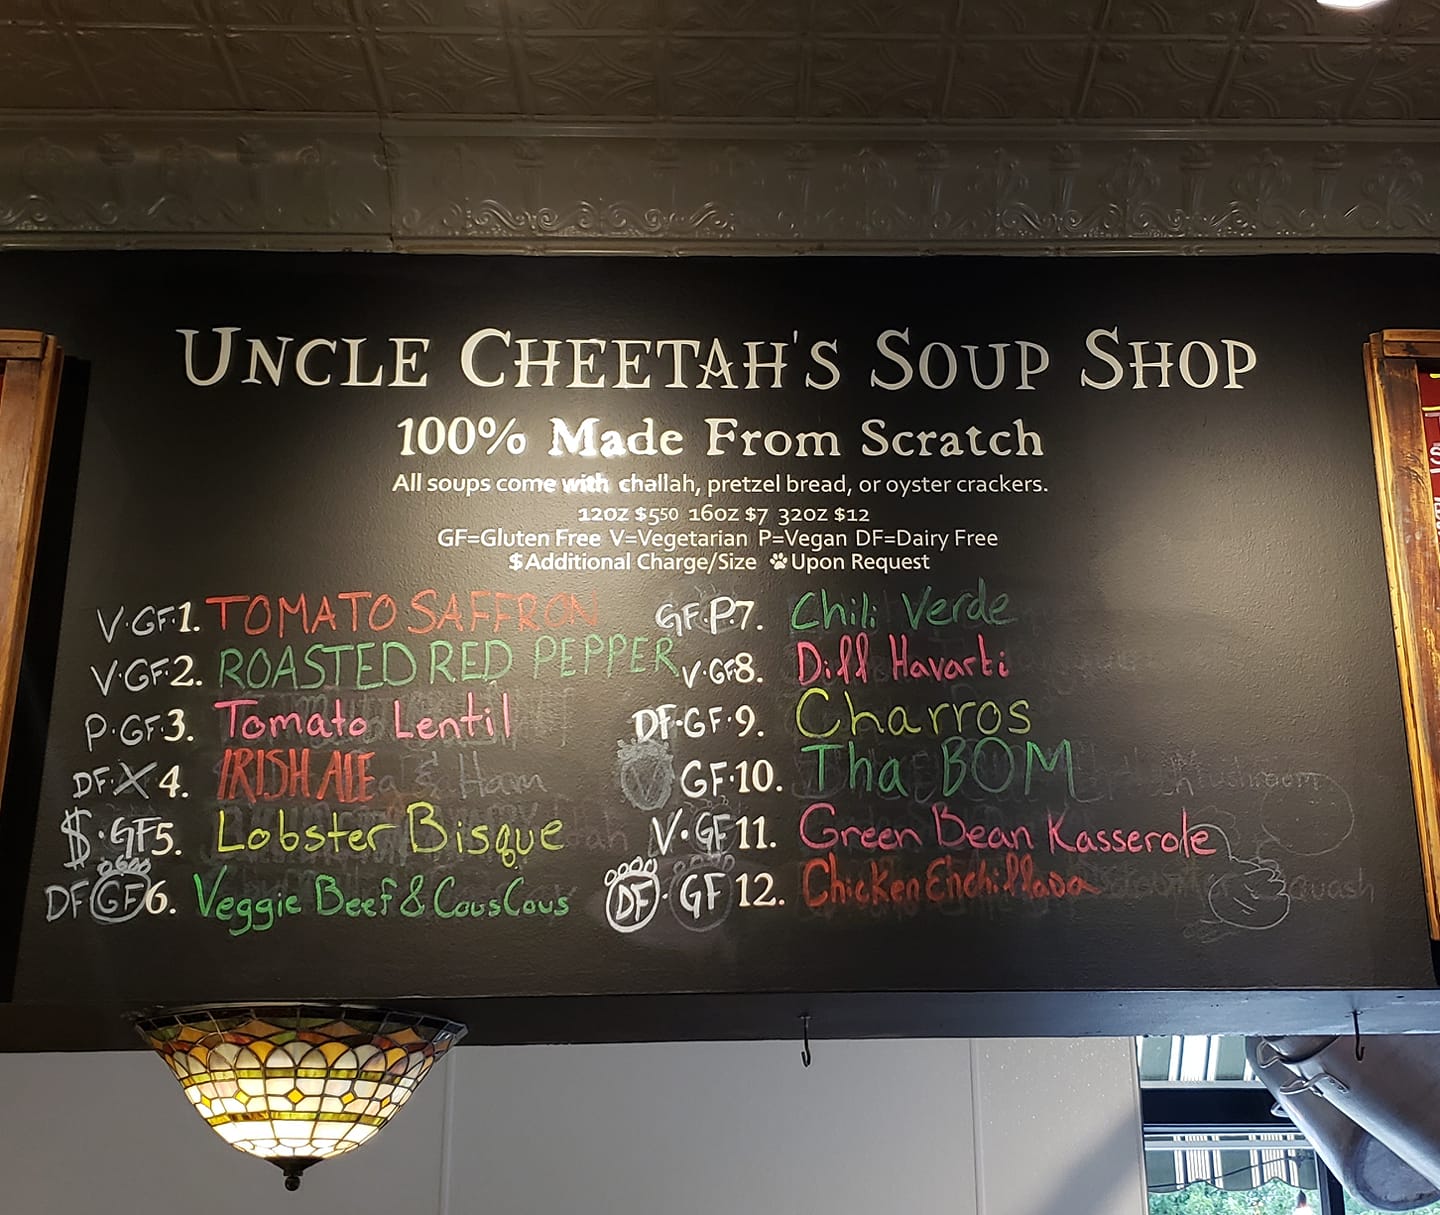 UNCLE CHEETAH'S SOUP SHOP
100% Made From Scratch
All soups come with challah, pretzel bread, or oyster crackers.
12oz $5.50 16oz $7 32oz $12
GF=Gluten Free V=Vegetarian P=Vegan DF=Dairy Free
$Additional Charge/Size 🐾Upon Request
V·GF·1. TOMATO SAFFRON
V·GF·2. ROASTED RED PEPPER
P·GF·3. Tomato Lentil
DF·X 4. IRISH ALE
$·GF5. Lobster Bisque
DF GF 6. Veggie Beef & CousCous
GF·P·7. Chili Verde
V·GF8. Dill Havarti
DF·GF·9. Charros
GF·10. Tha BOM
V·GF11. Green Bean Kasserole
DF·GF 12. Chicken Enchillada